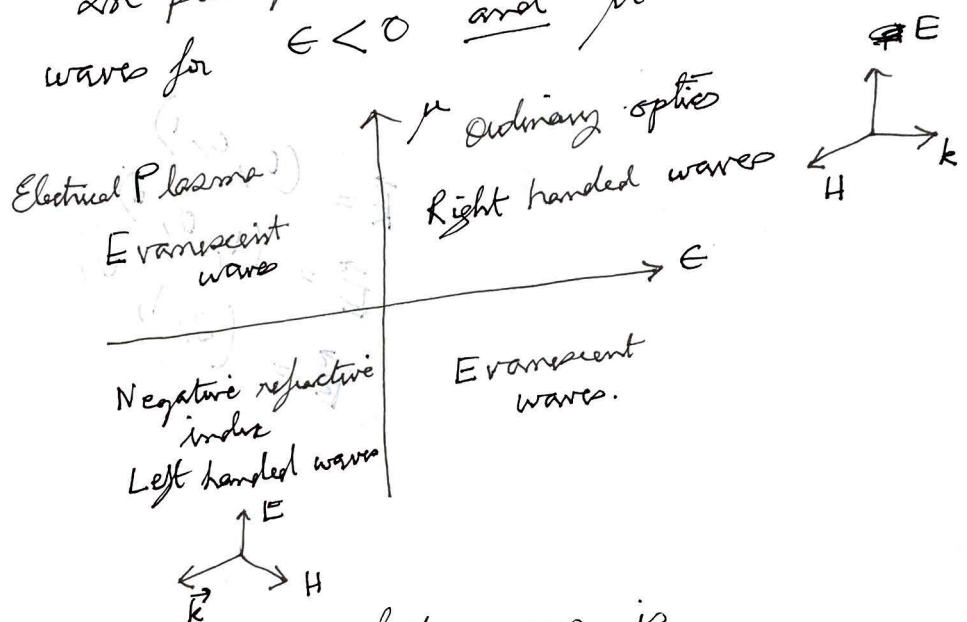 waves for ϵ < 0 and μ
μ
Ordinary optics
Right handed waves
E
k
H
Electrical Plasma
Evanescent
waves
ϵ
Negative refractive
index
Left handed waves
Evanescent
waves.
E
H
k⃗
is